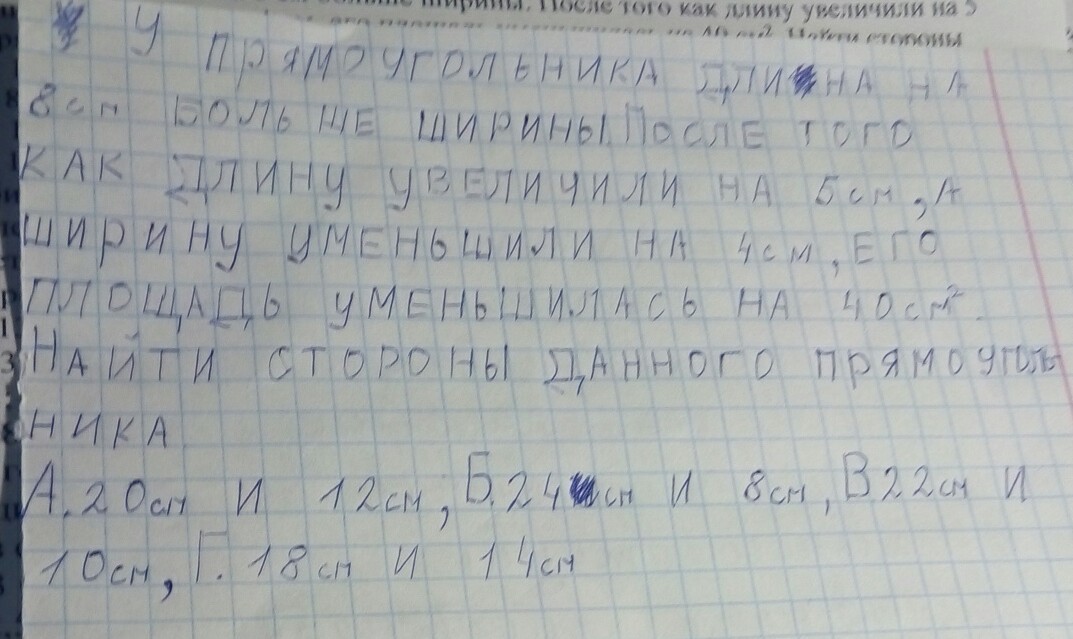 ширины. После того как длину увеличили на 5
Найти стороны
У ПРЯМОУГОЛЬНИКА ДЛИНА НА
8см БОЛЬШЕ ШИРИНЫ. ПОСЛЕ ТОГО
КАК ДЛИНУ УВЕЛИЧИЛИ НА 5см, А
ШИРИНУ УМЕНЬШИЛИ НА 4см, ЕГО
ПЛОЩАДЬ УМЕНЬШИЛАСЬ НА 40см².
НАЙТИ СТОРОНЫ ДАННОГО ПРЯМОУГОЛЬ
НИКА
А. 20см И 12см, Б. 24см И 8см, В 22см И
10см, Г. 18см И 14см